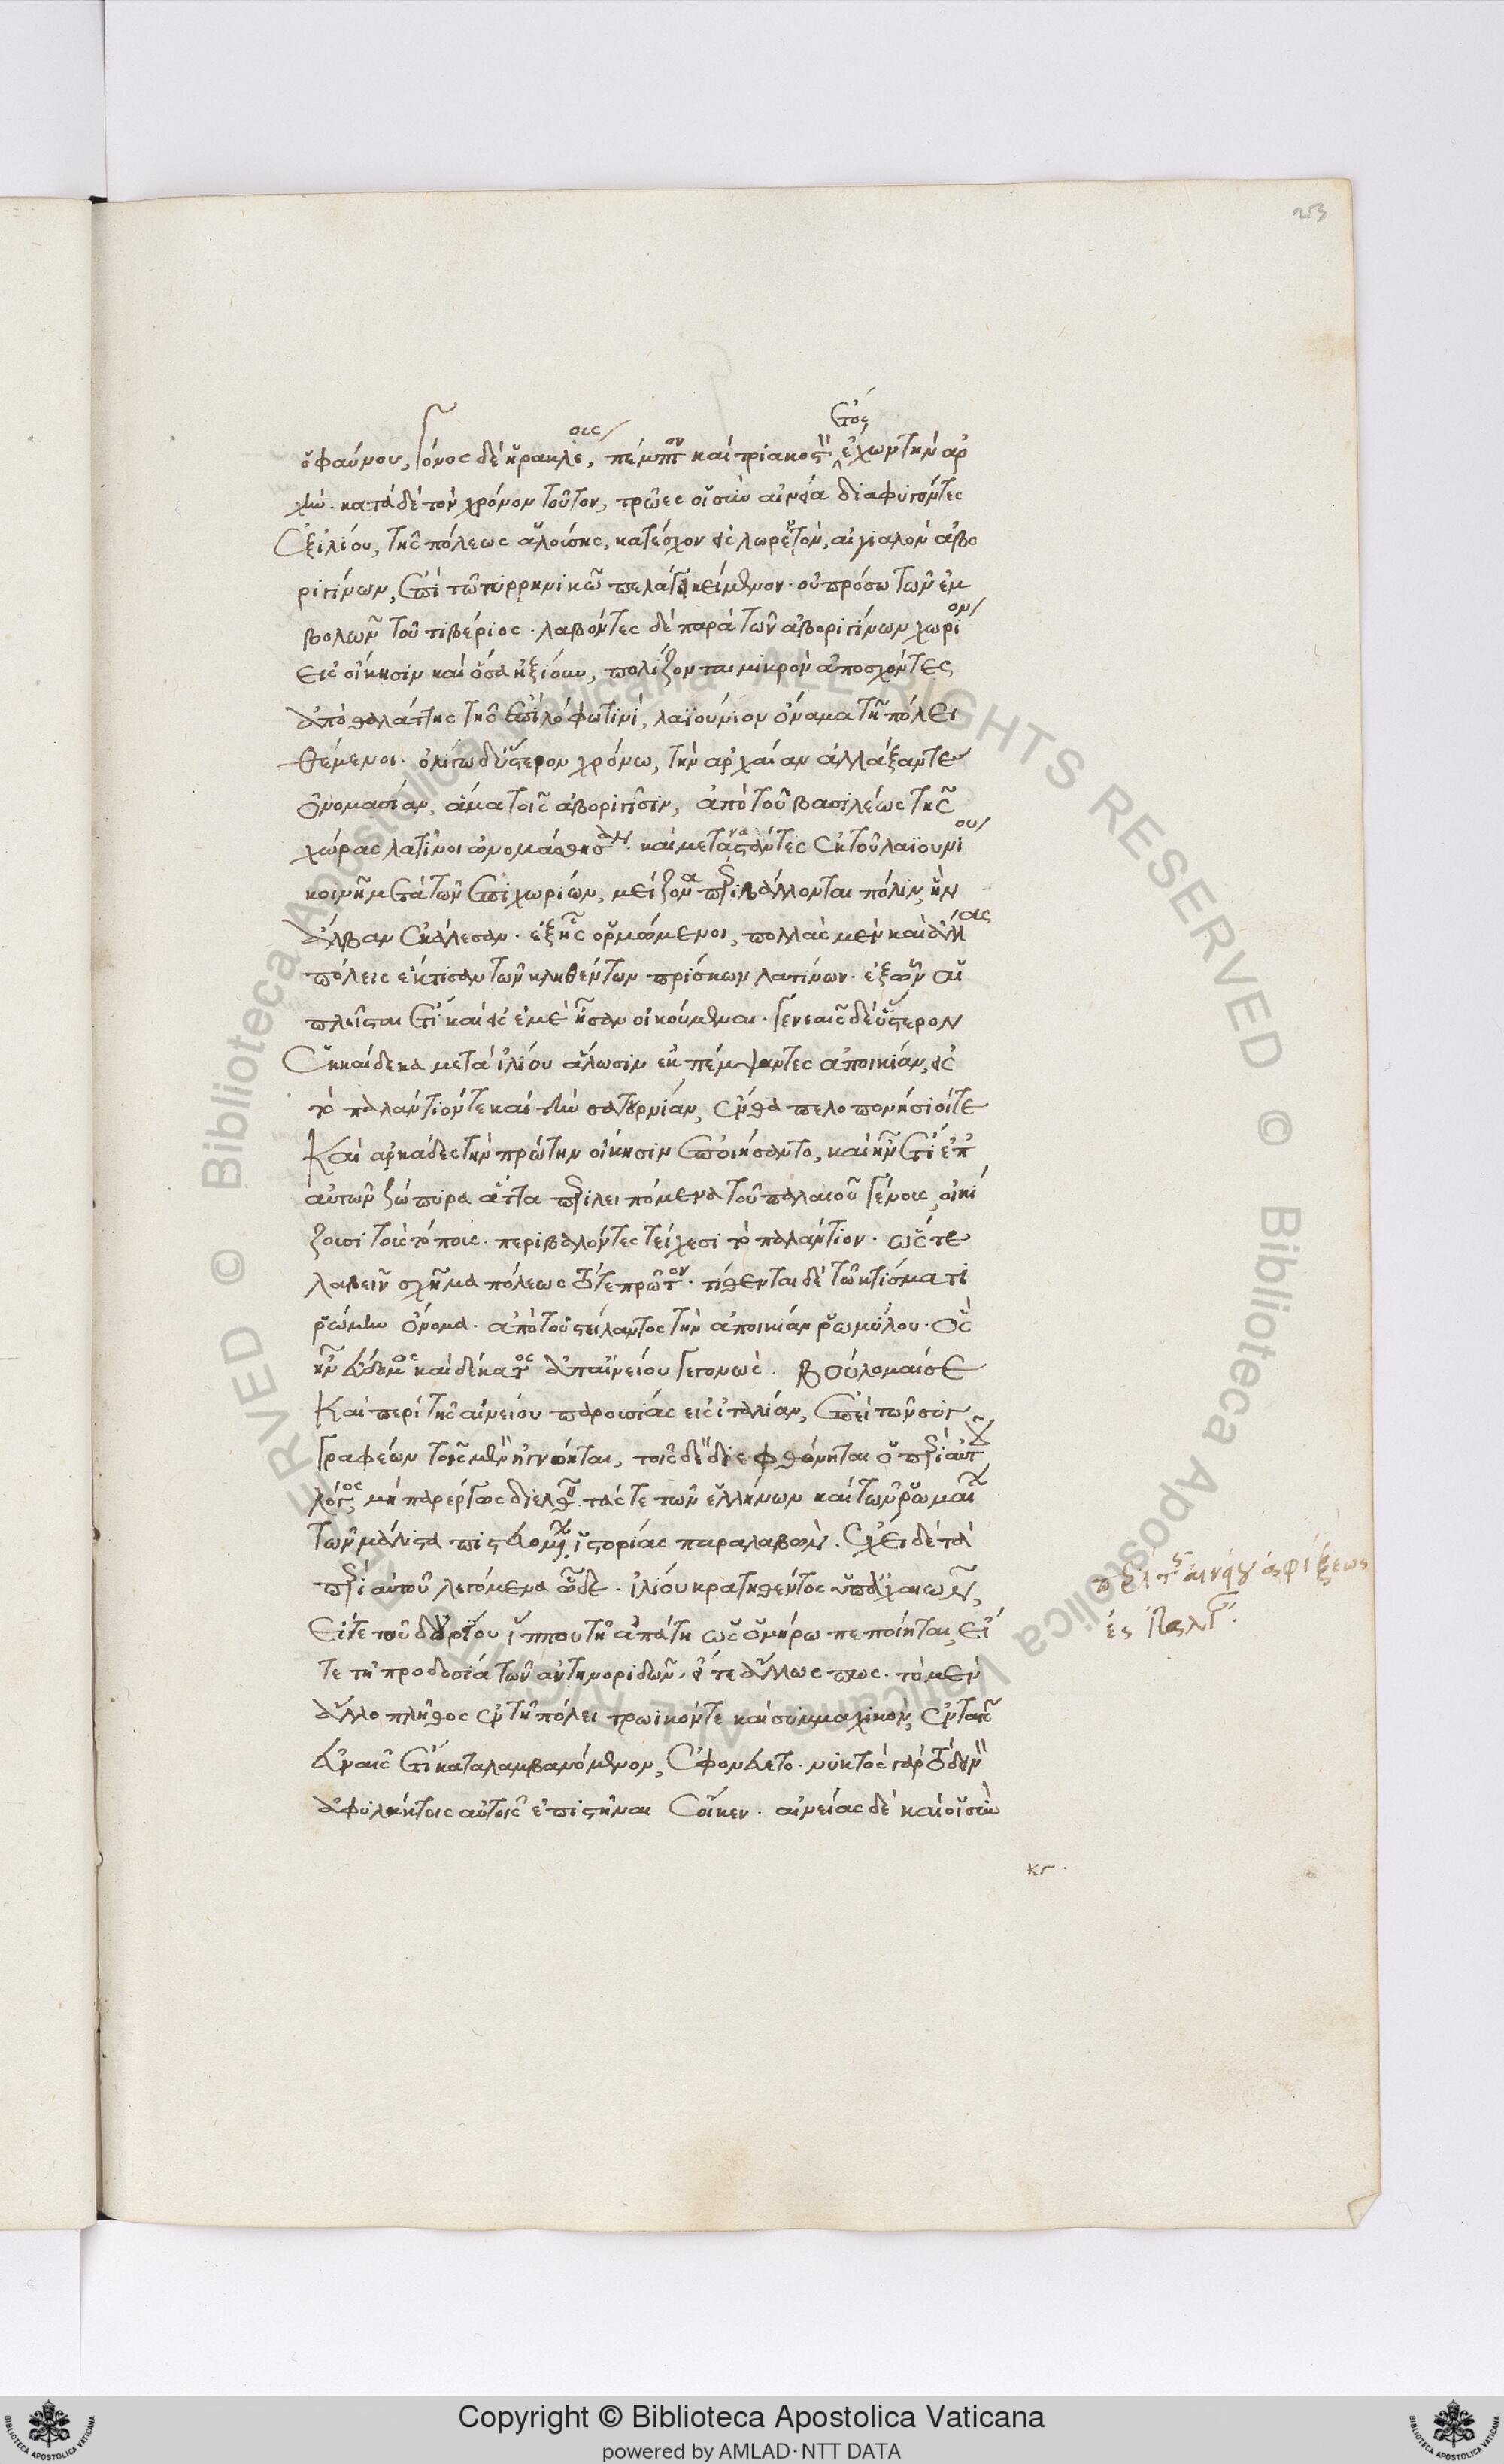 253
ὁ φαύνου, γόνος δὲ ἡρακλέοις, πέμπτον καὶ τριακοστὸν ἔτος ἔχων τὴν ἀρ
χήν. κατὰ δὲ τὸν χρόνον τοῦτον, τρῶες οἱ σὺν αἰνέα διαφυγόντες
ἐξ ἰλίου, τῆς πόλεως ἁλούσης, κατέσχον εἰς λωρεντὸν, αἰγιαλὸν ἀβο
ριγίνων, ἐπὶ τῶ τυρρηνικῶ πελάγει κείμενον. οὐ πρόσω τῶν ἐμ
βολῶν τοῦ τιβέριος. λαβόντες δὲ παρὰ τῶν ἀβοριγίνων χωρίον
εἰς οἴκησιν καὶ ὅσα ἠξίουν, πολίζονται μικρὸν ἀποσχόντες
ἀπὸ θαλάττης τῆς ἐπὶ λόφω τινί, λαϊουίνιον ὄνομα τῆ πόλει
θέμενοι. ὀλίγω δ' ὕστερον χρόνω, τὴν ἀρχαίαν ἀλλάξαντες
ὀνομασίαν, ἅμα τοῖς ἀβοριγῖσιν, ἀπὸ τοῦ βασιλέως τῆς
χώρας λατῖνοι ὠνομάσθησαν. καὶ μεταναστάντες ἐκ τοῦ λαϊουινίου
κοινῆ μετὰ τῶν ἐπιχωρίων, μείζονα περιβάλλονται πόλιν, ἣν
ἄλβαν ἐκάλεσαν. ἐξ ἧς ὁρμώμενοι, πολλὰς μὲν καὶ ἄλλας
πόλεις ἔκτισαν τῶν κληθέντων πρίσκων λατίνων. ἐξ ὧν αἱ
πλεῖσται ἔτι καὶ εἰς ἐμὲ ἦσαν οἰκούμεναι. γενεαῖς δὲ ὕστερον
ἑκκαίδεκα μετὰ ἰλίου ἅλωσιν ἐκπέμψαντες ἀποικίαν, εἰς
τὸ παλάντιόν τε καὶ τὴν σατορνίαν, ἔνθα πελοπονήσιοί τε
καὶ ἀρκάδες τὴν πρώτην οἴκησιν ἐποιήσαντο, καὶ ἦν ἔτι ἐπ
αὐτῶν ζώπυρα ἄττα περιλειπόμενα τοῦ παλαιοῦ γένους, οἰκί
ζουσι τοὺς τόπους. περιβαλόντες τείχεσι τὸ παλάντιον. ὥστε
λαβεῖν σχῆμα πόλεως τότε πρῶτον. τίθενται δὲ τῶ κτίσματι
ῥώμην ὄνομα. ἀπὸ τοῦ στείλαντος τὴν ἀποικίαν ῥωμύλου. ὃς
ἦν ἕβδομος καὶ δέκατος ἀπ' αἰνείου γεγονώς. βούλομαι δὲ
καὶ περὶ τῆς αἰνείου παρουσίας εἰς ἰταλίαν, ἐπεὶ τῶν συγ
γραφέων τοῖς μὲν ἠγνόηται, τοῖς δὲ διεφώνηται ὁ περὶ αὐτοῦ
λόγος, μὴ παρέργως διελθεῖν. τάς τε τῶν ἑλλήνων καὶ τῶν ῥωμαίων
τῶν μάλιστα πιστευομένων ἱστορίας παραλαβών. ἔχει δὲ τὰ
περὶ αὐτοῦ λεγόμενα ὧδε. ἰλίου κρατηθέντος ὑπὸ ἀχαιῶν,
εἴτε τοῦ δουρίου ἵππου τῆ ἀπάτη ὡς ὁμήρω πεποίηται, εἴ
τε τῆ προδοσία τῶν ἀντηνοριδῶν. εἴτε ἄλλως πως. τὸ μὲν
ἄλλο πλῆθος ἐν τῆ πόλει τρωϊκόν τε καὶ συμμαχικὸν, ἐν ταῖς
εὐναῖς ἔτι καταλαμβανόμενον, ἐφονεύετο. νυκτὸς γὰρ τὸ δεινὸν
ἀφυλάκτοις αὐτοῖς ἐπιστῆναι ἔοικεν. αἰνείας δὲ καὶ οἱ σὺν
περὶ τῆς αἰνείου ἀφίξεως
ἐς ἰταλίαν.
κγ.
Copyright © Biblioteca Apostolica Vaticana
powered by AMLAD·NTT DATA